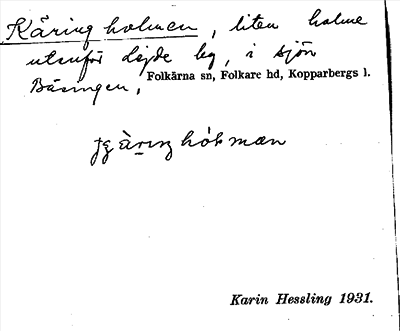 Käringholmen, liten holme
utanför Döjde by, i sjön
Bäsingen, Folkärna sn, Folkare hd, Kopparbergs l.
Karin Hessling 1931.